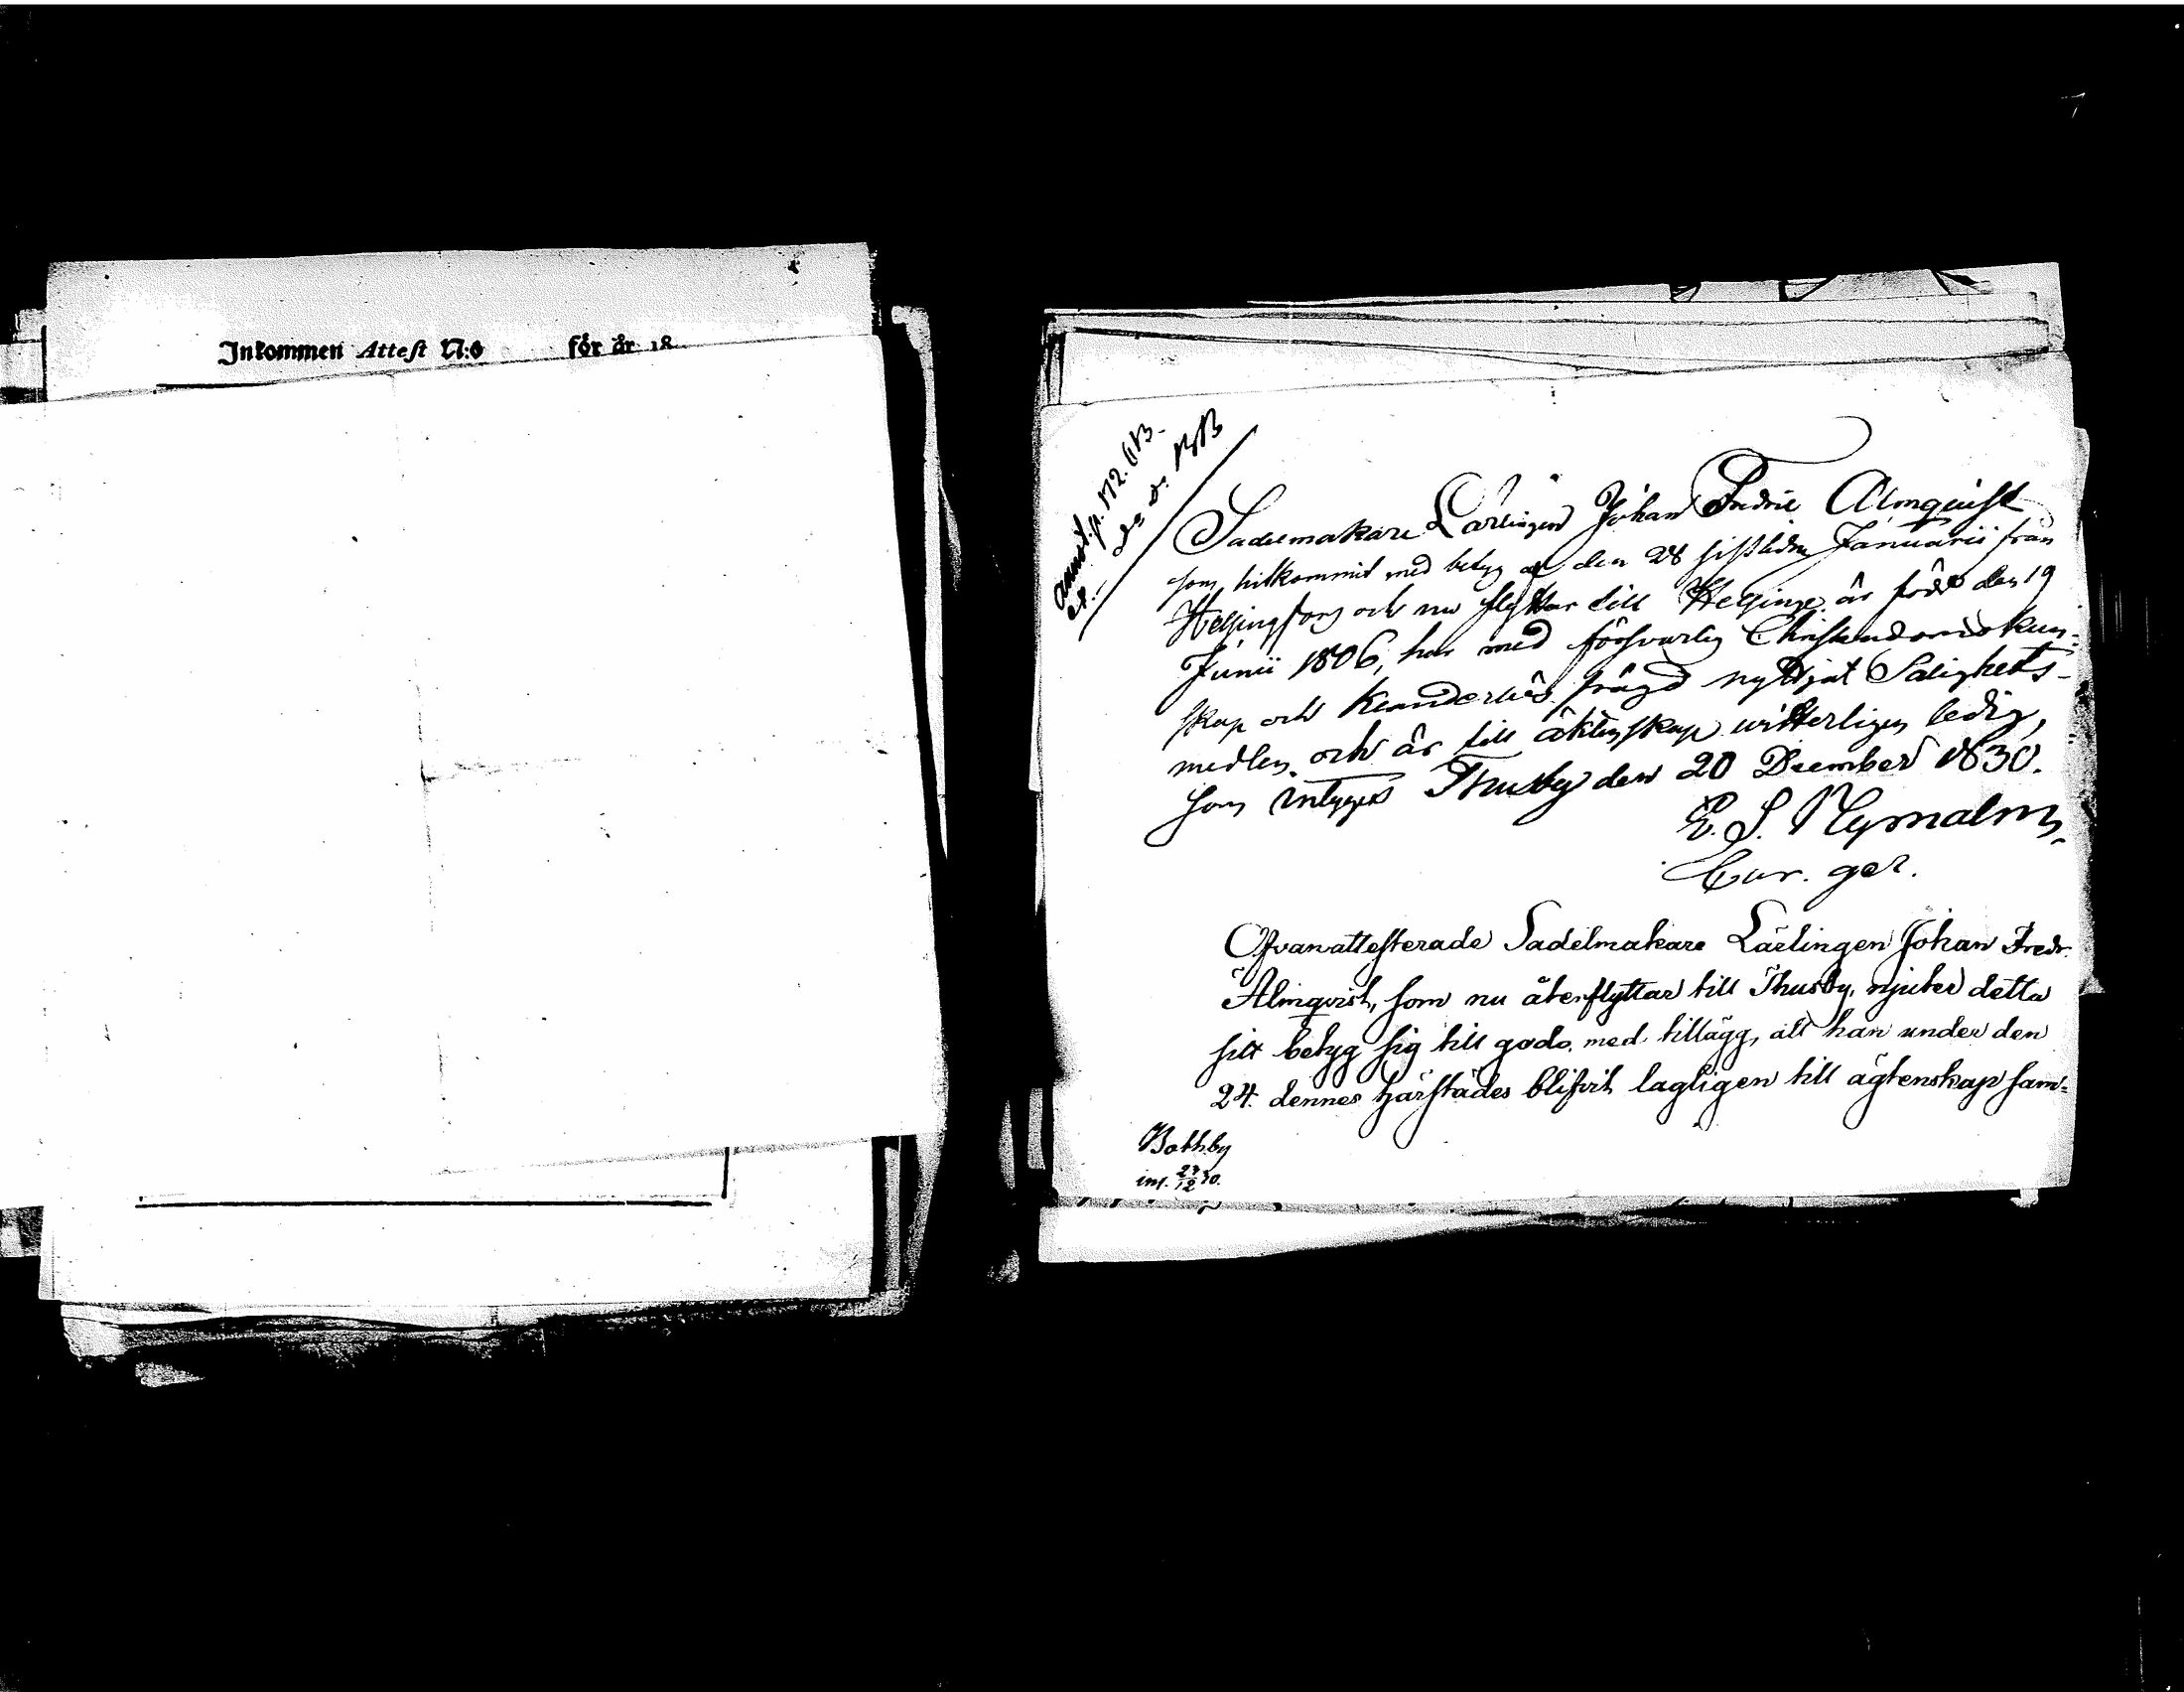 Inkommen Attest N:o för år 18
Sadelmakare Lärlingen Johan Fredric Almquist
som hitkommit med betyg af den 28 sistledne Januarii från
Helsingfors och nu flyttar till Helsinge är född den 19
Junii 1806, har med försvarlig Christendomskun-
skap och frägd nyttjat Salighets-
medlen och är till äktenskap witterligen ledig,
som intygas Thusby den 20 December 1830.
E. S. Nymalm,
Cur. ger.
Ofvanattesterade Sadelmakare Lärlingen Johan Fredr.
Almqvist, som nu återflyttar till Thusby, njuter detta
sitt betyg sig till godo med tillägg, att han under den
24. dennes härstädes blifvit lagligen till ägtenskap sam-
Bothby
int. 27/12 30.